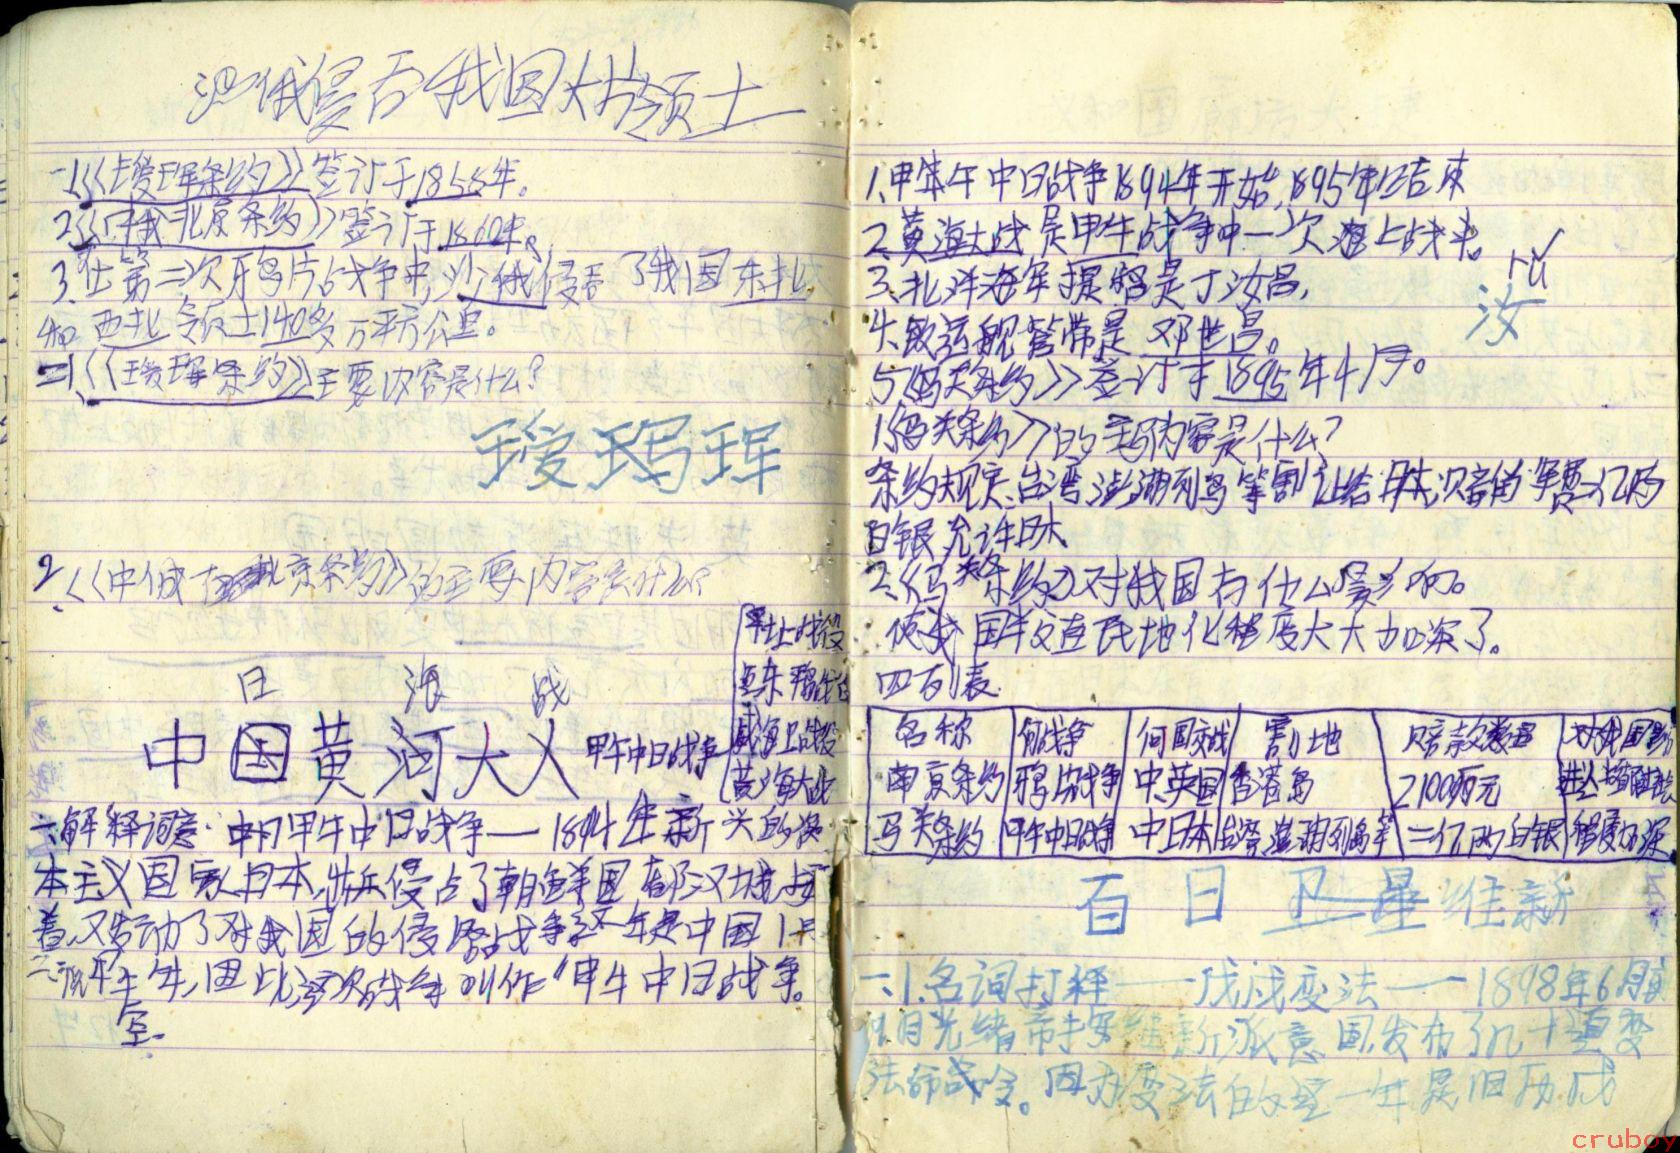 沙俄侵吞我国大片领土
一1.《瑷珲条约》签订于1858年。
2.《中俄北京条约》签订于1860年。
3.在第二次鸦片战争中,沙俄侵吞了我国东北
和西北领土140多万平方公里。
二1.《瑷珲条约》主要内容是什么?
瑷 珲
2.《中俄北京条约》的主要内容是什么?
日 海 战
中国黄河大人
甲午中日战争
平壤战役
黄海大战
威海卫战役
一.解释词意. 甲午中日战争——1894年新兴的资
本主义国家日本,出兵侵占了朝鲜国都汉城,
着,又发动了对我国的侵略战争这一年是中国
甲午年,因此这次战争叫作“甲午中日战争。
1.甲午中日战争1894年开始,1895年结束
2.黄海大战是甲午战争中一次海上战斗。
3.北洋海军提督是丁汝昌,
rǔ
汝
4.致远舰管带是邓世昌。
5《马关条约》签订于1895年4月。
1.《马关条约》的主要内容是什么?
条约规定,台湾,澎湖列岛等割让给日本,赔偿军费二亿两
白银允许日本
2.《马关条约》对我国有什么影响。
使我国半殖民地化程度大大加深了。
四 列表
名称 何战争 何国交战 割地 赔款数量 对我国影
南京条约 鸦片战争 中,英国 香港岛 2100万元
马关条约 甲午中日战争 中日本 台湾,澎湖列岛等 二亿两白银 程度加深
百日卫星维新
一.1.名词打释——戊戌变法——1898年6月
9月光绪帝按维新派意图,发布了几十道变
法命令。因为变法的这一年是旧历戊
cruboy